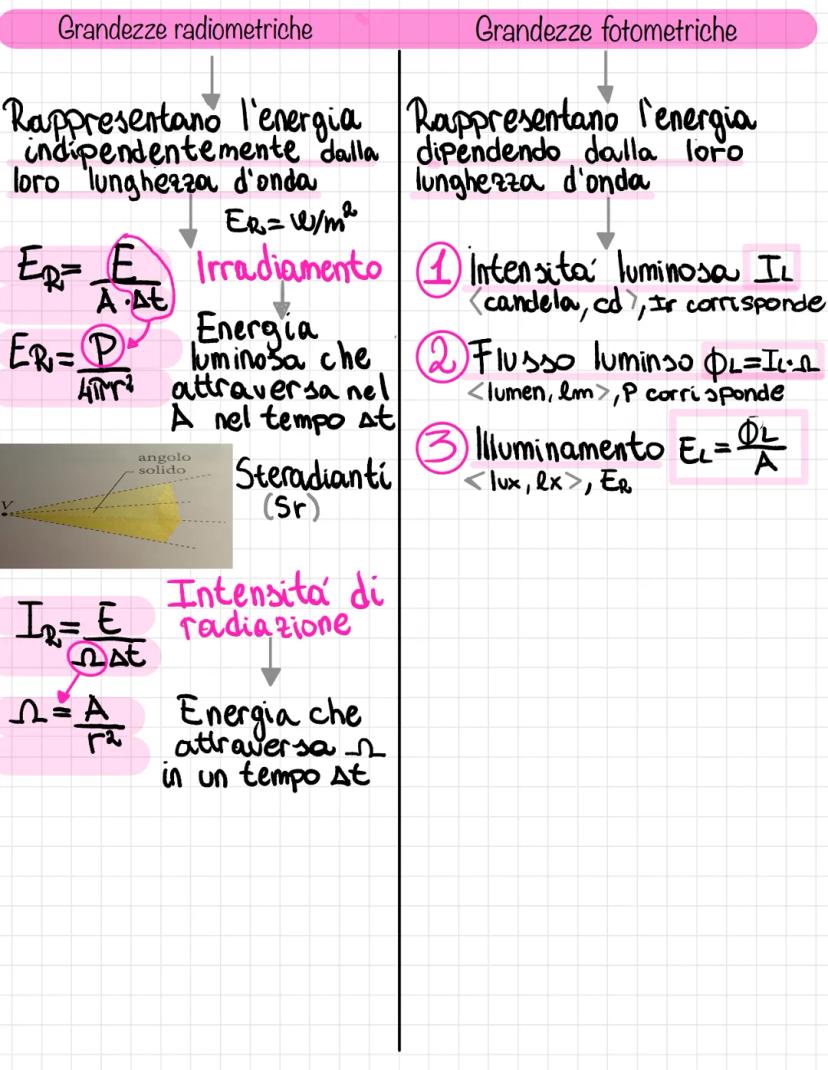 Grandezze radiometriche
Rappresentano l'energia
indipendentemente dalla
loro lunghezza d'onda
E_R = W/m²
E_R = E / A · Δt
Irradiamento
E_R = P / 4πr²
Energia
luminosa che
attraversa nel
A nel tempo Δt
angolo
solido
V
Steradianti
(Sr)
Intensitá di
radiazione
I_R = E / Ω Δt
Ω = A / r²
Energia che
attraversa Ω
in un tempo Δt
Grandezze fotometriche
Rappresentano l'energia
dipendendo dalla loro
lunghezza d'onda
1 Intensitá luminosa I_L
<candela, cd>, Ir corrisponde
2 Flusso luminso ϕ_L = I_L · Ω
<lumen, lm>, P corrisponde
3 Illuminamento E_L = ϕ_L / A
<lux, lx>, E_R